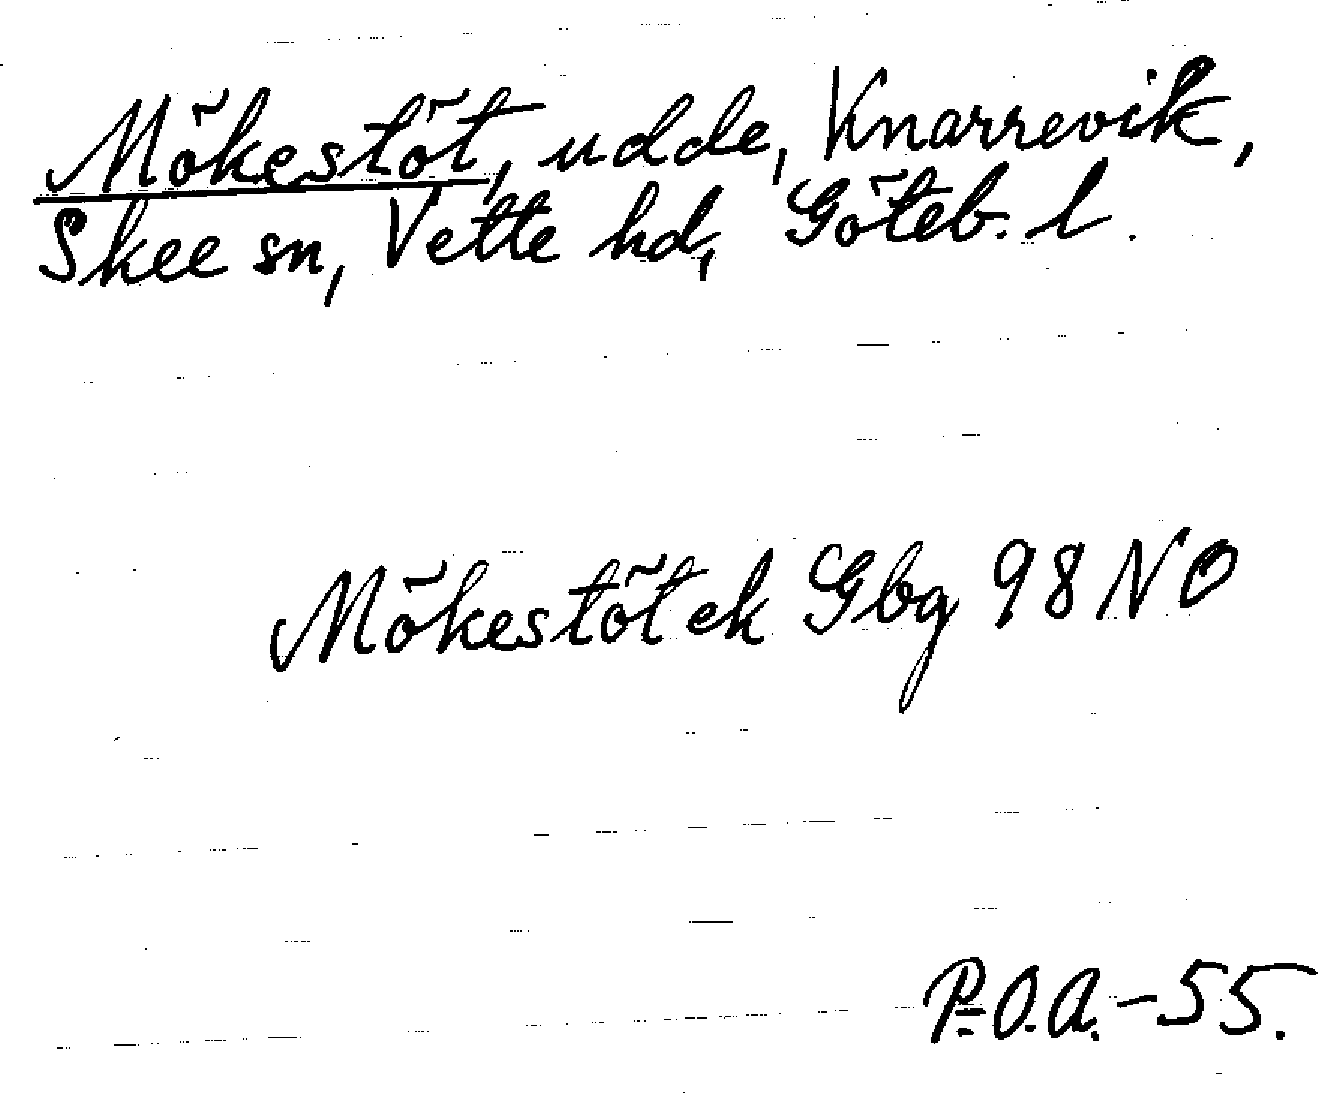 Mökestöt, udde, Knarrevik,
Skee sn, Vette hd, Göteb. l.
Mökestöt ek Gbg 98 NO
P.O.A.-55.